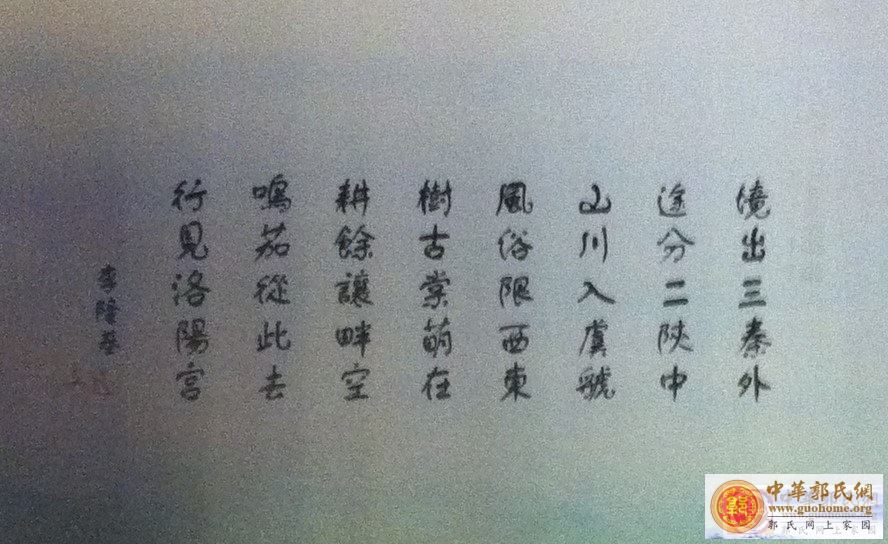 境出三秦外
途分二陝中
山川入虞虢
風俗限西東
樹古棠萌在
耕餘讓畔空
鳴茄從此去
行見洛陽宮
李隆基
中華郭氏網
www.guohome.org
郭氏网上家园